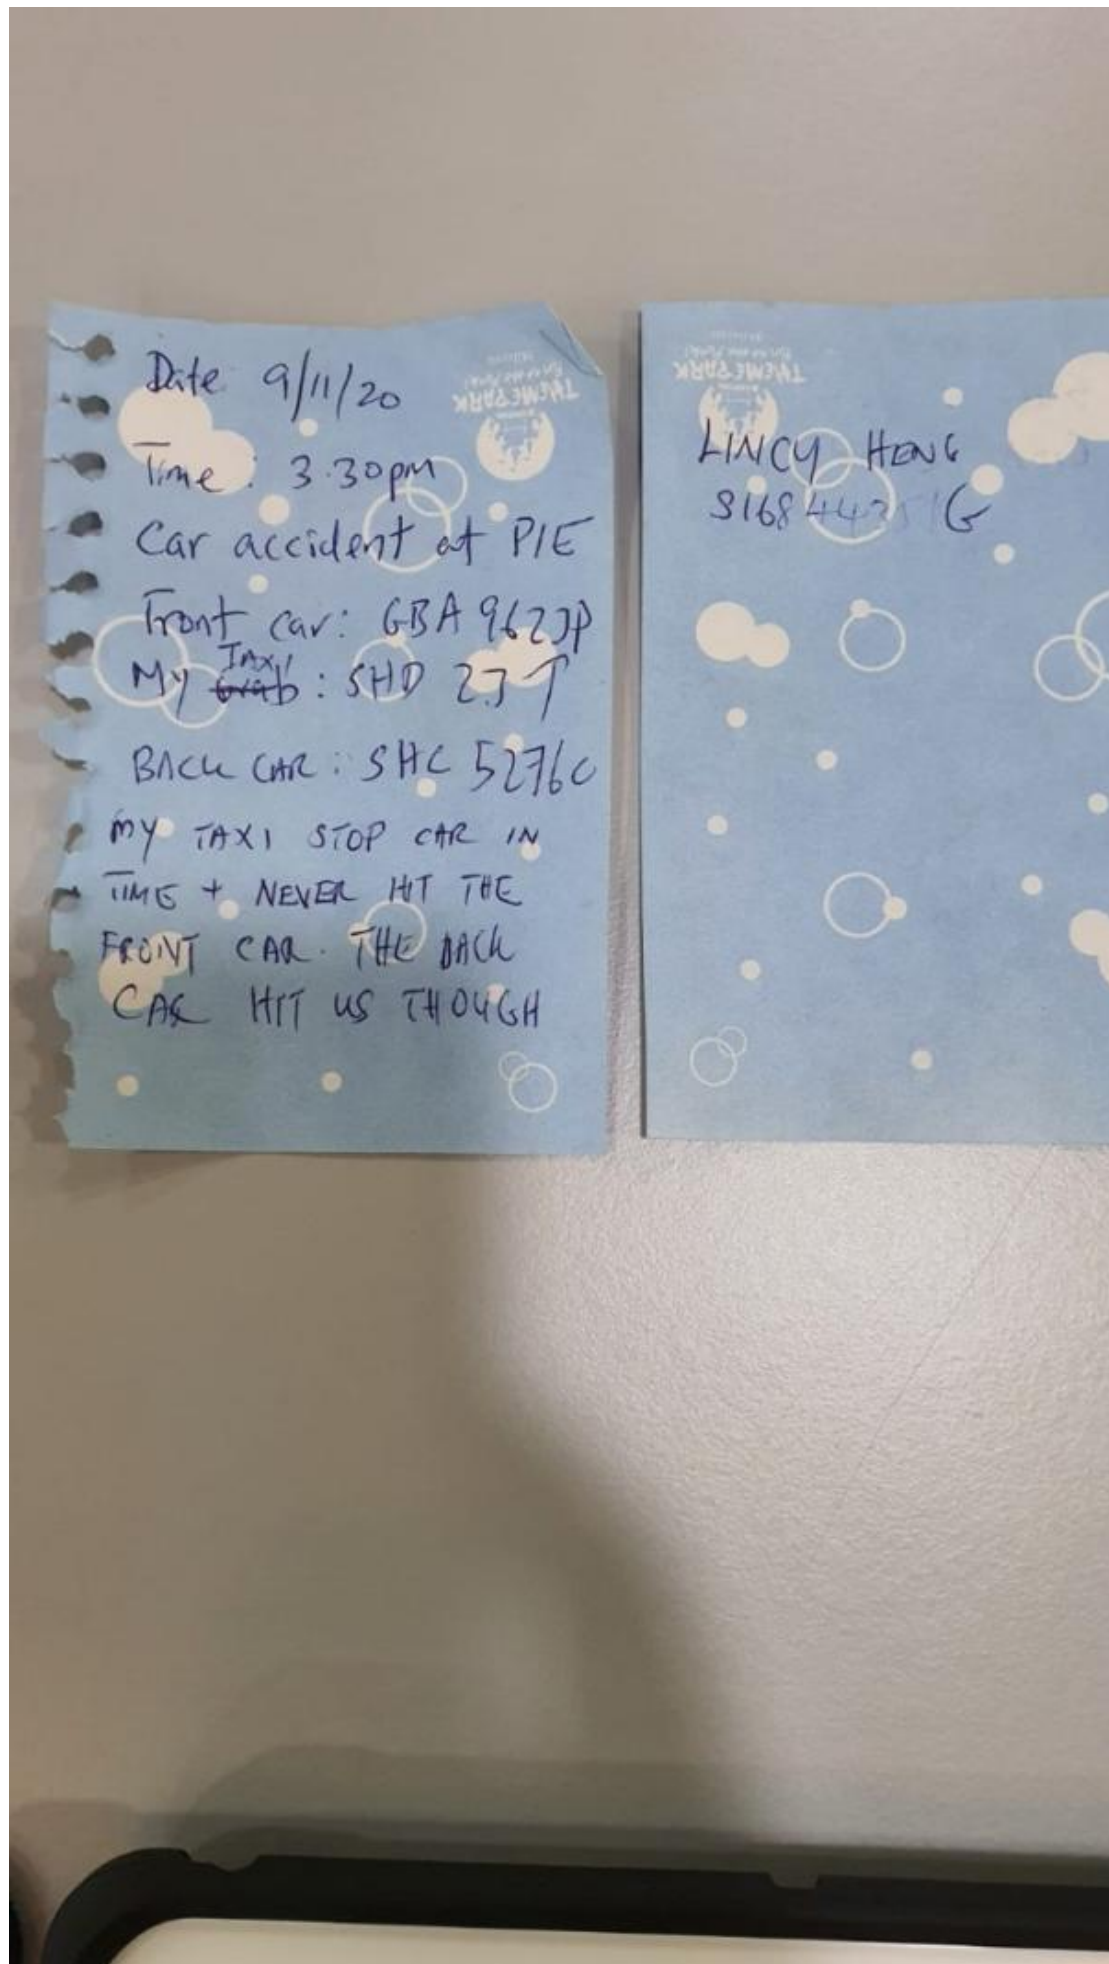 Date 9/11/20
Time: 3.30pm
Car accident at PIE
Front car: GBA 9623P
TAXI
My Grab: SHD 23 T
BACK CAR: SHC 5276C
MY TAXI STOP CAR IN
TIME + NEVER HIT THE
FRONT CAR. THE BACK
CAR HIT US THOUGH
THEMEPARK
LINCY HENG
THEMEPARK